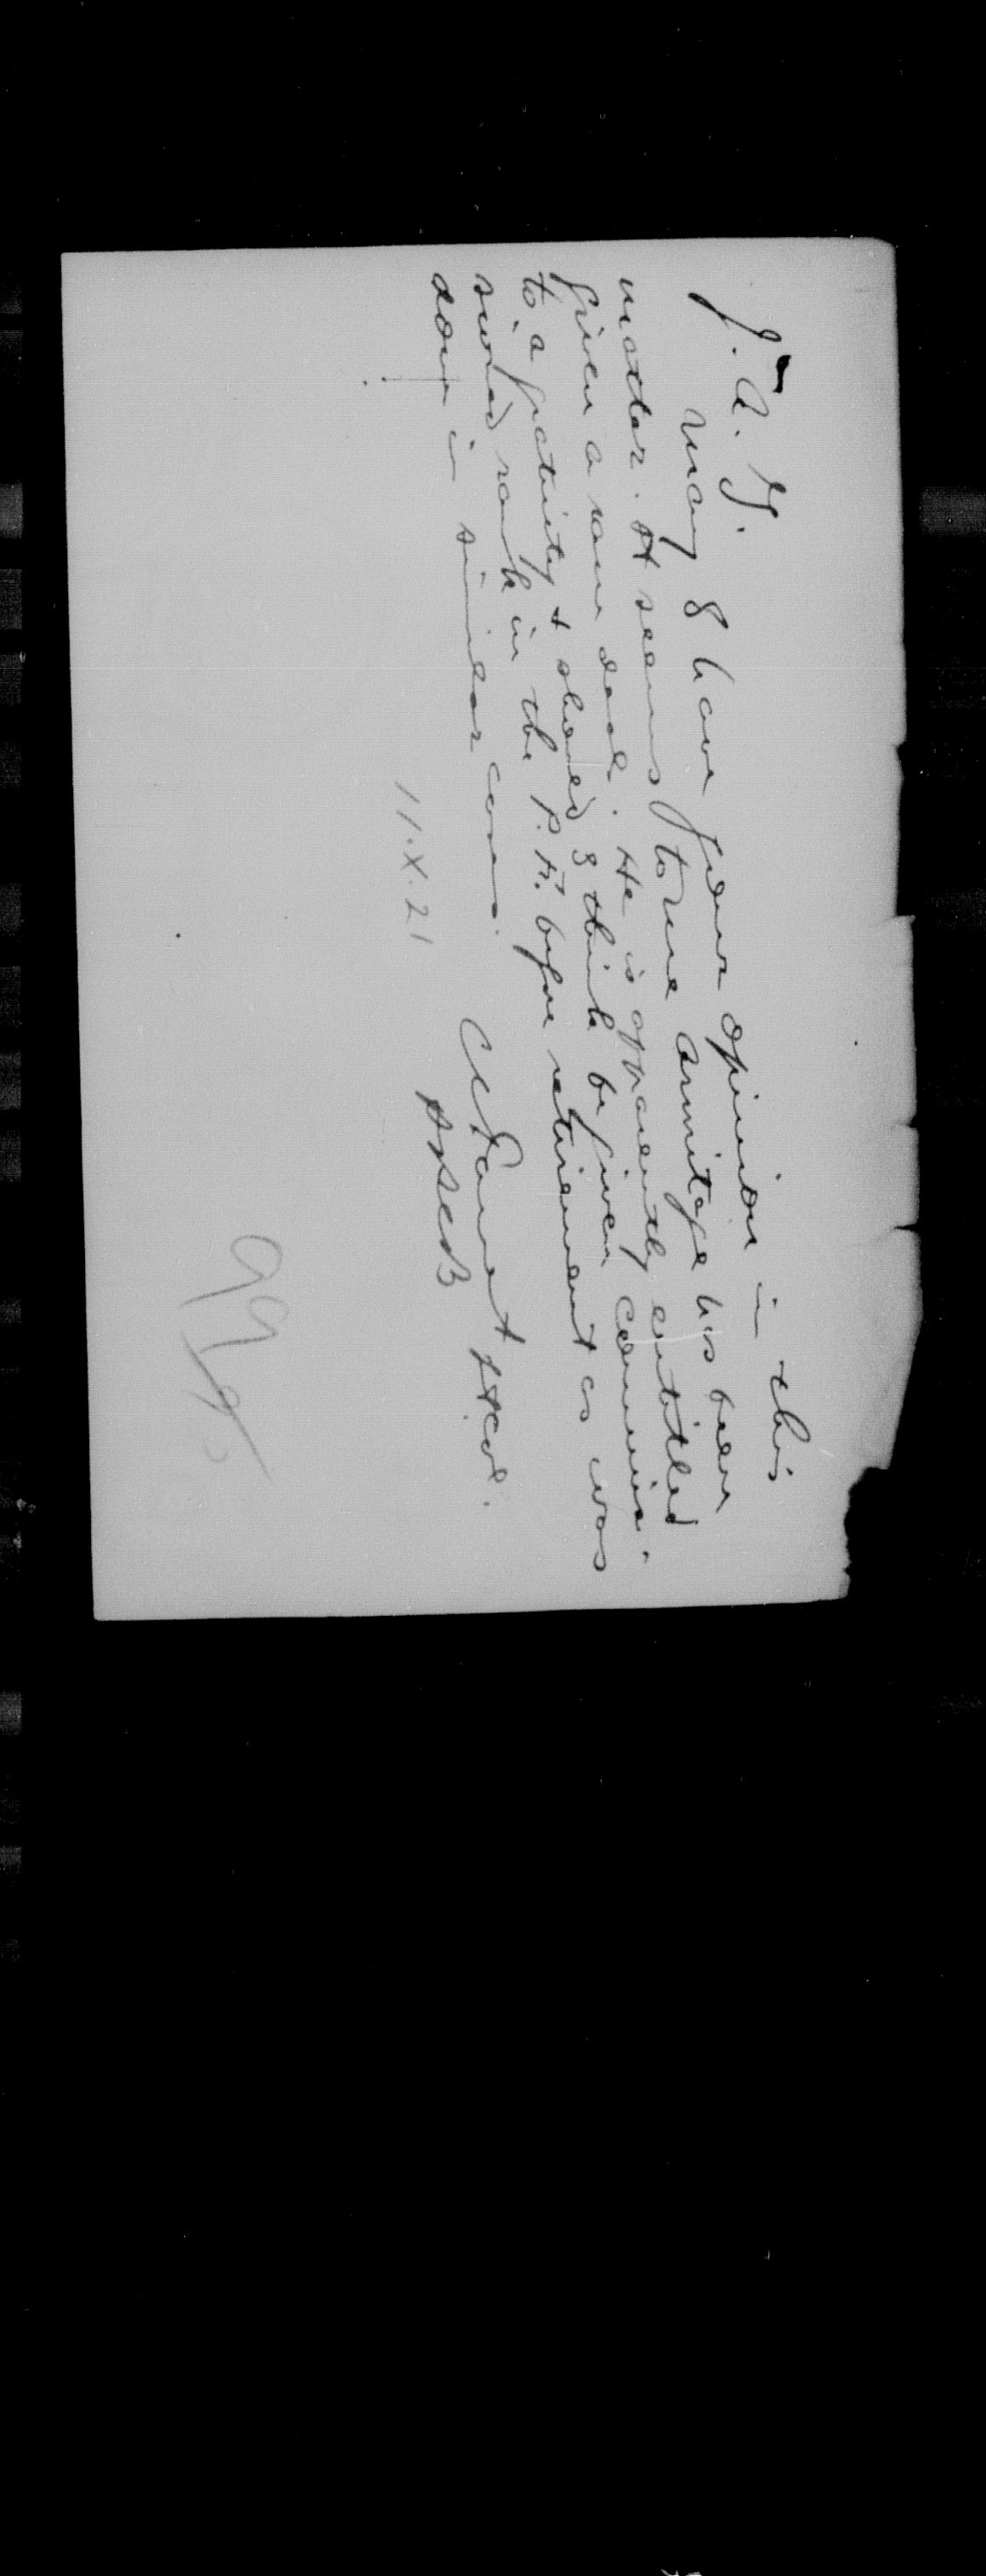 J.A.G.
May I have your opinion in this
matter. It seems to me Armitage has been
given a raw deal. He is apparently entitled
to a gratuity & should I think be given commis-
sioned rank in the P.F. before retirement as was
done in similar cases.
Lt Col.
11.X.21
99